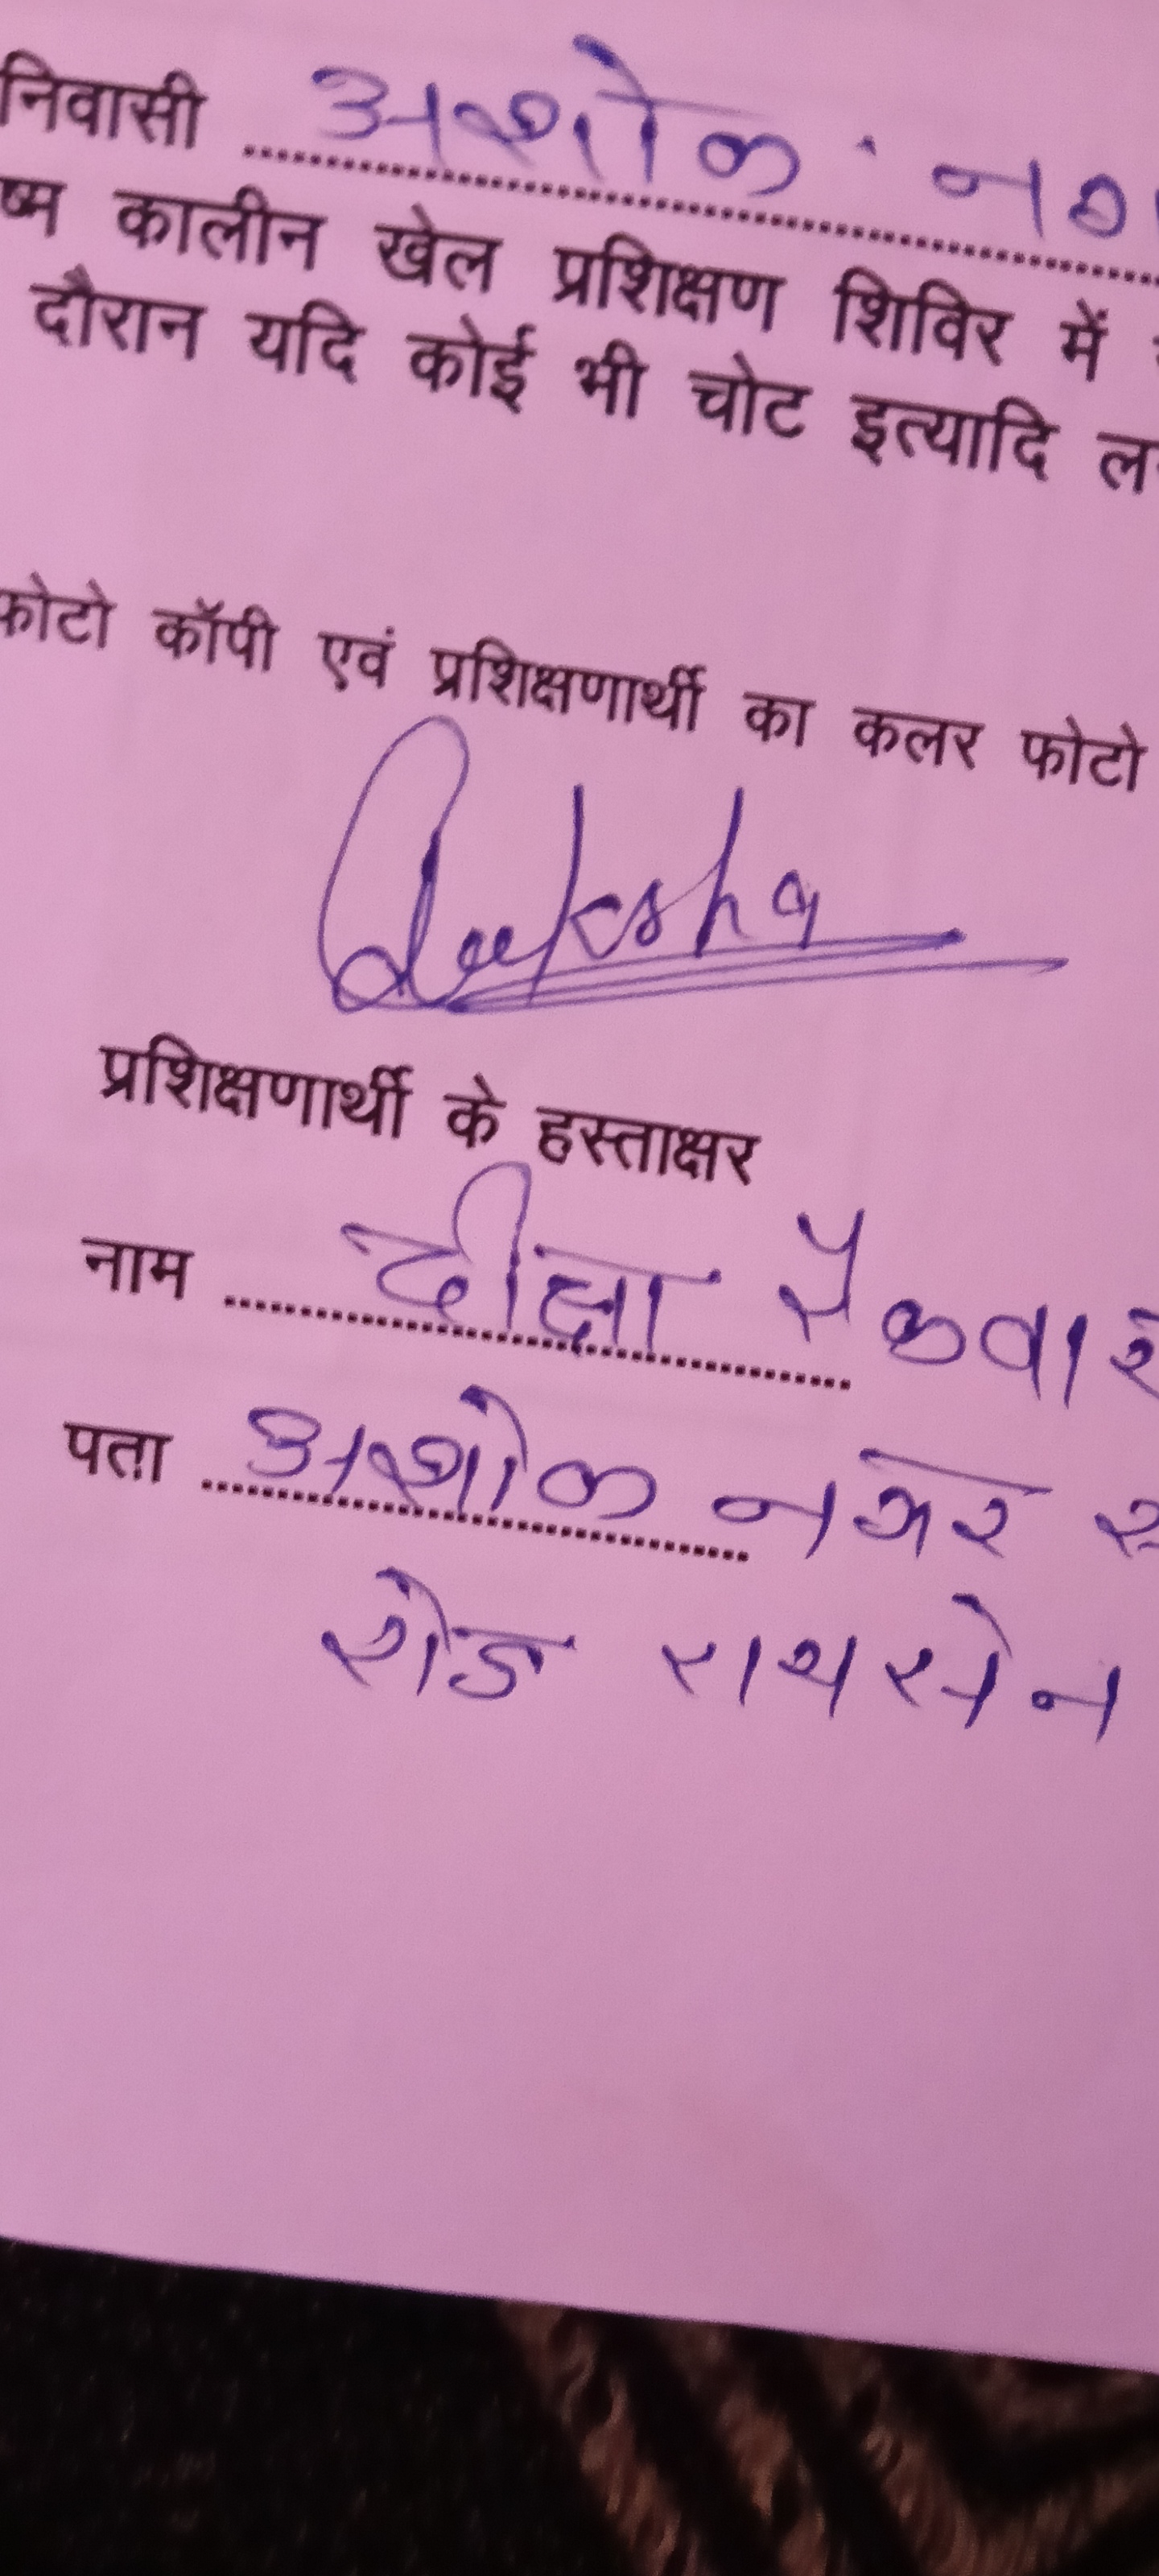 निवासी अशोक नग
ष्म कालीन खेल प्रशिक्षण शिविर में
दौरान यदि कोई भी चोट इत्यादि ल
फोटो कॉपी एवं प्रशिक्षणार्थी का कलर फोटो
Deeksha
प्रशिक्षणार्थी के हस्ताक्षर
नाम दीक्षा रैकवार
पता अशोक नगर
रोड रायसेन